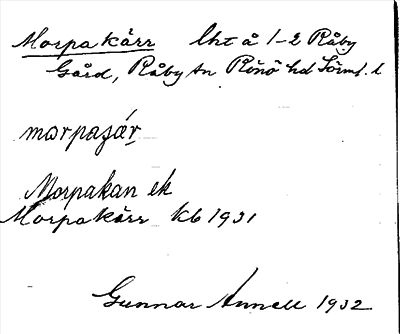 Morpakärr Lht å 1-2 Råby
Gård, Råby sn Rönö hd Sörml. l
morpaɟár
Morpakan ek
Morpakärr kb 1931
Gunnar Annell 1932